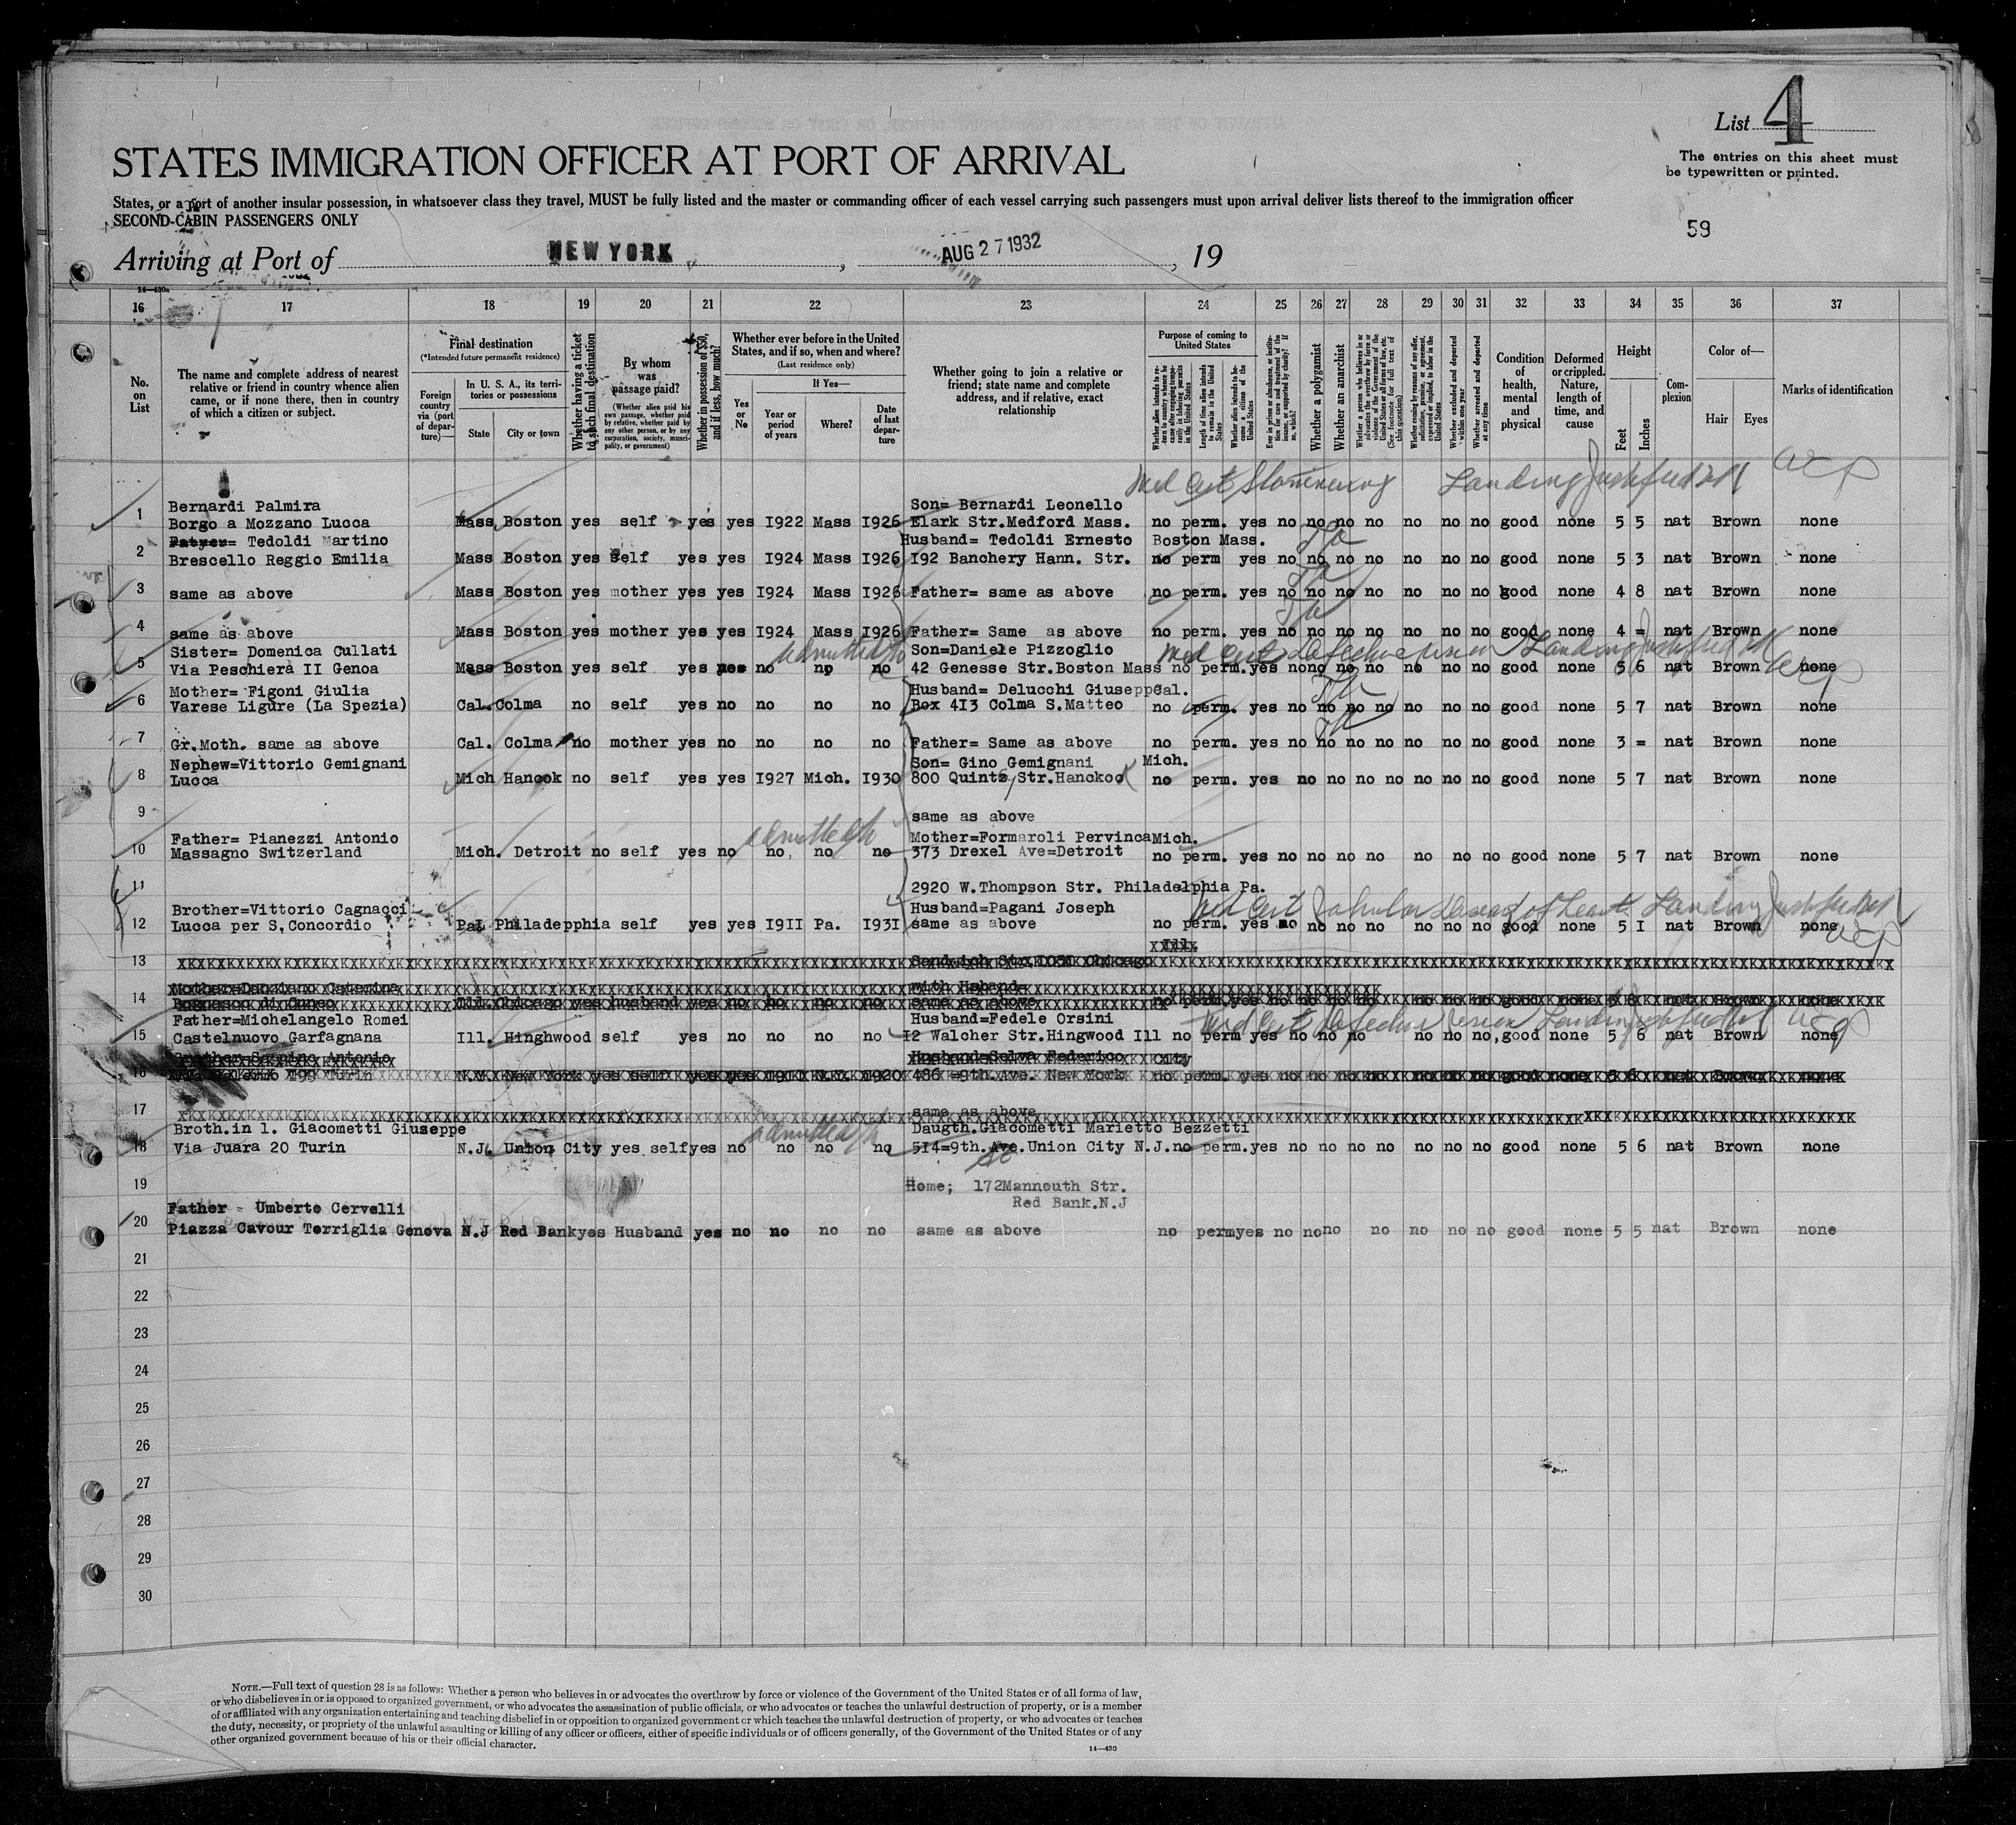 List 4
The entries on this sheet must
be typewritten or printed.
STATES IMMIGRATION OFFICER AT PORT OF ARRIVAL
States, or a port of another insular possession, in whatsoever class they travel, MUST be fully listed and the master or commanding officer of each vessel carrying such passengers must upon arrival deliver lists thereof to the immigration officer
SECOND-CABIN PASSENGERS ONLY
59
Arriving at Port of NEW YORK, AUG 27 1932, 19
14-430a
16 17 18 19 20 21 22 23 24 25 26 27 28 29 30 31 32 33 34 35 36 37
No. on List
The name and complete address of nearest relative or friend in country whence alien came, or if none there, then in country of which a citizen or subject.
Final destination
(*Intended future permanent residence)
Foreign country via (port of departure)—
In U. S. A., its territories or possessions
State City or town
Whether having a ticket to such final destination
By whom was passage paid?
(Whether alien paid his own passage, whether paid by relative, whether paid by any other person, or by any corporation, society, municipality, or government)
Whether in possession of $50, and if less, how much?
Whether ever before in the United States, and if so, when and where?
(Last residence only)
Yes or No
If Yes—
Year or period of years
Where?
Date of last departure
Whether going to join a relative or friend; state name and complete address, and if relative, exact relationship
Purpose of coming to United States
Length of time alien intends to remain in the United States
Whether alien intends to become a citizen of the United States
Whether a polygamist
Whether an anarchist
Whether excluded and deported within one year
Whether arrested and deported at any time
Condition of health, mental and physical
Deformed or crippled. Nature, length of time, and cause
Height
Feet Inches
Complexion
Color of—
Hair Eyes
Marks of identification
Med Cert Landing Justified
Bernardi Palmira Son= Bernardi Leonello
1 Borgo a Mozzano Lucca Mass Boston yes self yes yes I922 Mass I926 Elark Str.Medford Mass. no perm. yes no no no no no no no good none 5 5 nat Brown none
Tedoldi Martino Husband= Tedoldi Ernesto Boston Mass.
2 Brescello Reggio Emilia Mass Boston yes self yes yes I924 Mass I926 I92 Banchery Hann. Str. no perm yes no no no no no no no good none 5 3 nat Brown none
3 same as above Mass Boston yes mother yes yes I924 Mass I926 Father= same as above no perm. yes no no no no no no no good none 4 8 nat Brown none
4 same as above Mass Boston yes mother yes yes I924 Mass I926 Father= Same as above no perm. yes no no no no no no no good none 4 = nat Brown none
Sister= Domenica Cullati admitted Son=Daniele Pizzoglio Med Cert Defective vision Landing Justified
5 Via Peschiera II Genoa Mass Boston yes self yes no no no 42 Genesse Str.Boston Mass no perm.yes no no no no no no no good none 5 6 nat Brown none
Mother= Figoni Giulia Husband= Delucchi Giuseppe Cal.
6 Varese Ligure (La Spezia) Cal. Colma no self yes no no no no Box 4I3 Colma S.Matteo no perm. yes no no no no no no no good none 5 7 nat Brown none
7 Gr.Moth. same as above Cal. Colma no mother yes no no no no Father= Same as above no perm. yes no no no no no no no good none 3 = nat Brown none
Nephew=Vittorio Gemignani Son= Gino Gemignani Mich.
8 Lucca Mich Hancok no self yes yes I927 Mich. I930 800 Quints Str.Hanckoc no perm. yes no no no no no no no good none 5 7 nat Brown none
9 same as above
Father= Pianezzi Antonio admitted Mother=Formaroli Pervinca Mich.
10 Massagno Switzerland Mich. Detroit no self yes no no, no no 373 Drexel Ave=Detroit no perm. yes no no no no no no no good none 5 7 nat Brown none
11 2920 W.Thompson Str. Philadelphia Pa.
Brother=Vittorio Cagnacci Husband=Pagani Joseph Med Cert Valvular disease of heart Landing Justified
12 Lucca per S,Concordio Pa. Philadepphia self yes yes I9II Pa. I93I same as above no perm. yes no no no no no no no good none 5 I nat Brown none
Ill.
13 Sandwich Str. Chicago
Mother=Danziano Caterina with Hsband=
14 Ill. Chikago yes husband yes no no no no same as above no perm.yes no no no no no no no good none nat Brown none
Father=Michelangelo Romei Husband=Fedele Orsini Med Cert Defective vision Landing Justified
15 Castelnuovo Garfagnana Ill. Hinghwood self yes no no no no I2 Walcher Str.Hingwood Ill no perm yes no no no no no no, good none 5 6 nat Brown none
Antonio Husband=Selva Federico City
16 199 Turin N.Y. New York yes self yes yes N.Y. 1920 486 =9th.Ave. New York no perm. yes no no no no no no no good none 5 6 nat Brown none
17 same as above
Broth.in l. Giacometti Giuseppe admitted Daugth.Giacometti Marietto Bezzetti
18 Via Juara 20 Turin N.J. Union City yes self yes no no no no 5I4=9th.Ave.Union City N.J. no perm.yes no no no no no no no good none 5 6 nat Brown none
St
19 Home; I72Mannouth Str.
Red Bank.N.J
Father - Umberto Cervelli
20 Piazza Cavour Torriglia Genova N.J Red Bank yes Husband yes no no no no same as above no perm yes no no no no no no no good none 5 5 nat Brown none
21
22
23
24
25
26
27
28
29
30
NOTE.—Full text of question 28 is as follows: Whether a person who believes in or advocates the overthrow by force or violence of the Government of the United States or of all forms of law,
or who disbelieves in or is opposed to organized government, or who advocates the assassination of public officials, or who advocates or teaches the unlawful destruction of property, or is a member
of or affiliated with any organization entertaining and teaching disbelief in or opposition to organized government or which teaches the unlawful destruction of property, or who advocates or teaches
the duty, necessity, or propriety of the unlawful assaulting or killing of any officer or officers, either of specific individuals or of officers generally, of the Government of the United States or of any
other organized government because of his or their official character.
14—430